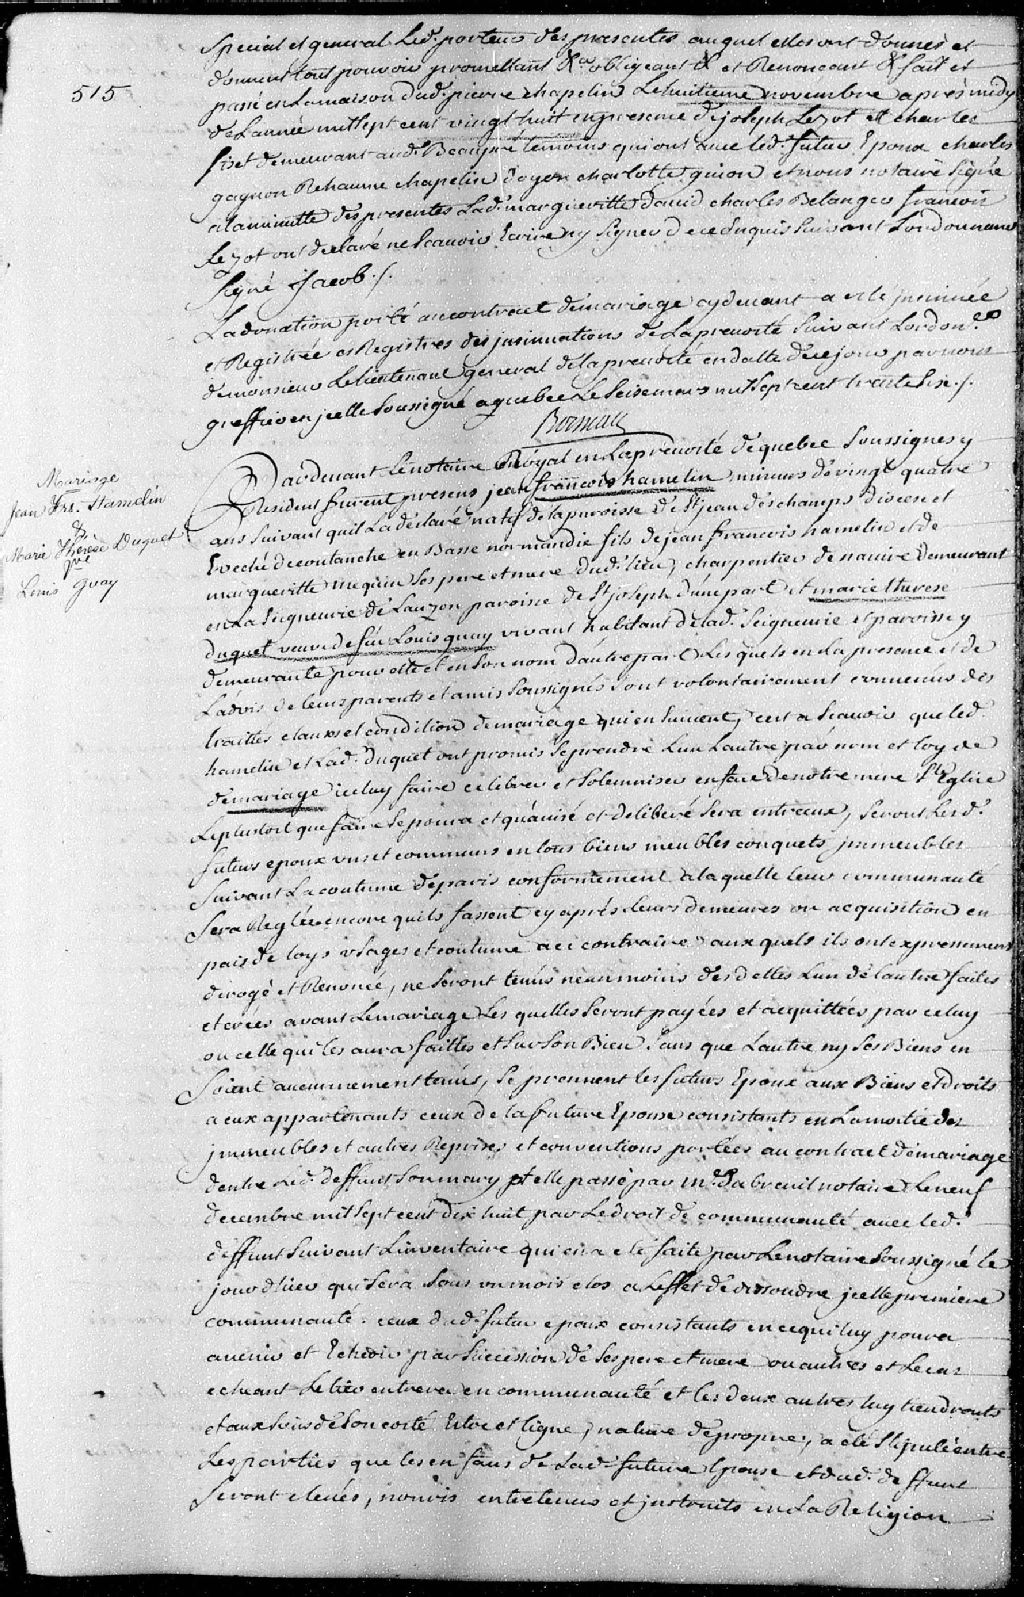 special et general led. porteur des presentes auquel elles ont donnés et
donnent tout pouvoir promettant &ca obligeant & et Renoncant & fait et
515
passé en la maison dud. pierre chapelin le huitieme novembre apres midy
de Lannée mil sept cent vingt huit en presence de joseph Lezot et charles
fiset demeurant aud. Beaupré temoins qui ont avec led. futur Epoux charles
gagnon Rehaume chapelin doyon charlotte guion et nous notaire signé
a la minutte des presentes Lad. margueritte david charles Belanger francois
Lezot ont declaré ne scavoir Ecrire ny signer de ce Enquis suivant Lordonnance
signé Jacob ./.
La donation porté au contract de mariage cy devant a eté jnsinuée
et Registrée es Registres des jnsinuations de La prevosté suivant Lordonce
de monsieur Le lieutenant general de la prevôté en datte de ce jour par nous
greffier en jcelle soussigné a quebec Le seise mars mil sept cent trente six ./.
Boisseau
Mariage
Jean Frs. Hamelin
&
Marie Thérèse Duquet
Vve
Louis Guay
Pardevant Le notaire Royal en La prevosté de quebec soussigné y
Resident furent presens jean francois hamelin mineur de vingt quatre
ans suivant quil La déclaré natif de la paroisse de St jean des champs diocese et
Eveché de coutanche en Basse normandie fils de jean francois hamelin et de
margueritte mequin ses pere et mere dud. lieu charpentier de navire demeurant
en La seigneurie de Lauzon paroisse de St joseph d'une part et marie therese
duquet veuve de feu Louis guay vivant habitant de lad. seigneurie et paroisse y
demeurante pour elle et en son nom d'autre part Lesquels en la presence et de
L'advis de leurs parents et amis soussignés sont volontairement convenus des
traittés clauses et condition de mariage qui en suivent, cest a scavoir que led.
hamelin et Lad. duquet ont promis se prendre L'un Lautre par nom et loy de
de mariage icelluy faire celebrer et solemniser en face de notre mere Ste Eglise
Le plustost que faire se poura et quavisé et deliberé sera entreux, seront Lesd.
futurs epoux uns et communs en tous biens meubles conquets jmmeubles
suivant La coutume de paris conformement a laquelle leur communauté
sera Reglée encore quils fassent cy après leurs demeures ou acquisition en
pais de loys usages et coutume a ce contraire auxquels ils ont expressement
dérogé et Renoncé, ne seront tenus neanmoins des dettes L'un de lautre faites
et crées avant Le mariage Les quelles seront payées et acquittées par celuy
ou celle qui les aura faittes et sur son Bien sans que Lautre ny ses Biens en
soient aucunement tenus, se prennent les futurs Epoux aux Biens et droits
a eux appartenants ceux de la future Epouse consistants en La moitié des
jmmeubles et autres Reprises et conventions portées au contract de mariage
dentre led. deffunt son mary et elle passé par me. Dubreuil notaire Le neuf
decembre mil sept cent dix huit par Le droit de communauté avec led.
deffunt suivant L'inventaire qui en a eté faite par Le notaire soussigné le
jour d'hier qui sera sous un mois clos a Leffet de dissoudre jcelle premiere
communauté. ceux dud. futur epoux consistants en ce qui luy poura
avenir et Echeoir par succession de ses pere et mere ou autres et Le cas
echeant Le tiers entrera en communauté et les deux autres luy tiendronts
et aux siens de son costé Estoc et ligne, nature de propre, a eté stipulé entre
Les parties que les enfans de Lad. future Epouse et dud. deffunt
seront elevés, nouris entretenus et jnstruits en La Religion